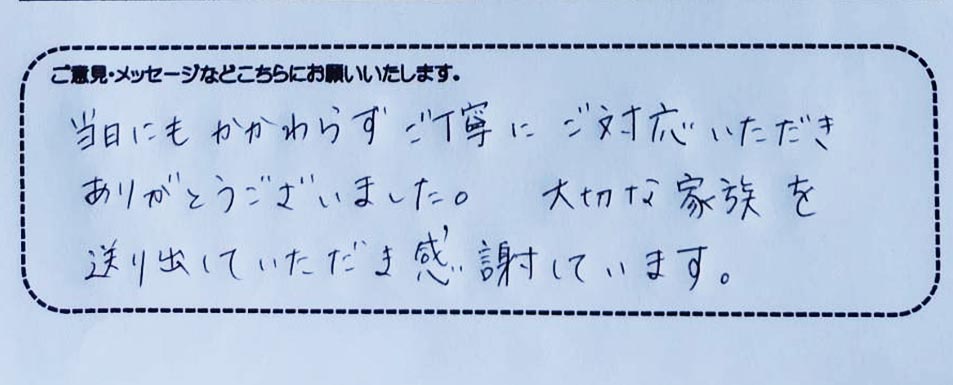 ご意見・メッセージなどこちらにお願いいたします。
当日にもかかわらずご丁寧にご対応いただき
ありがとうございました。 大切な家族を
送り出していただき感謝しています。